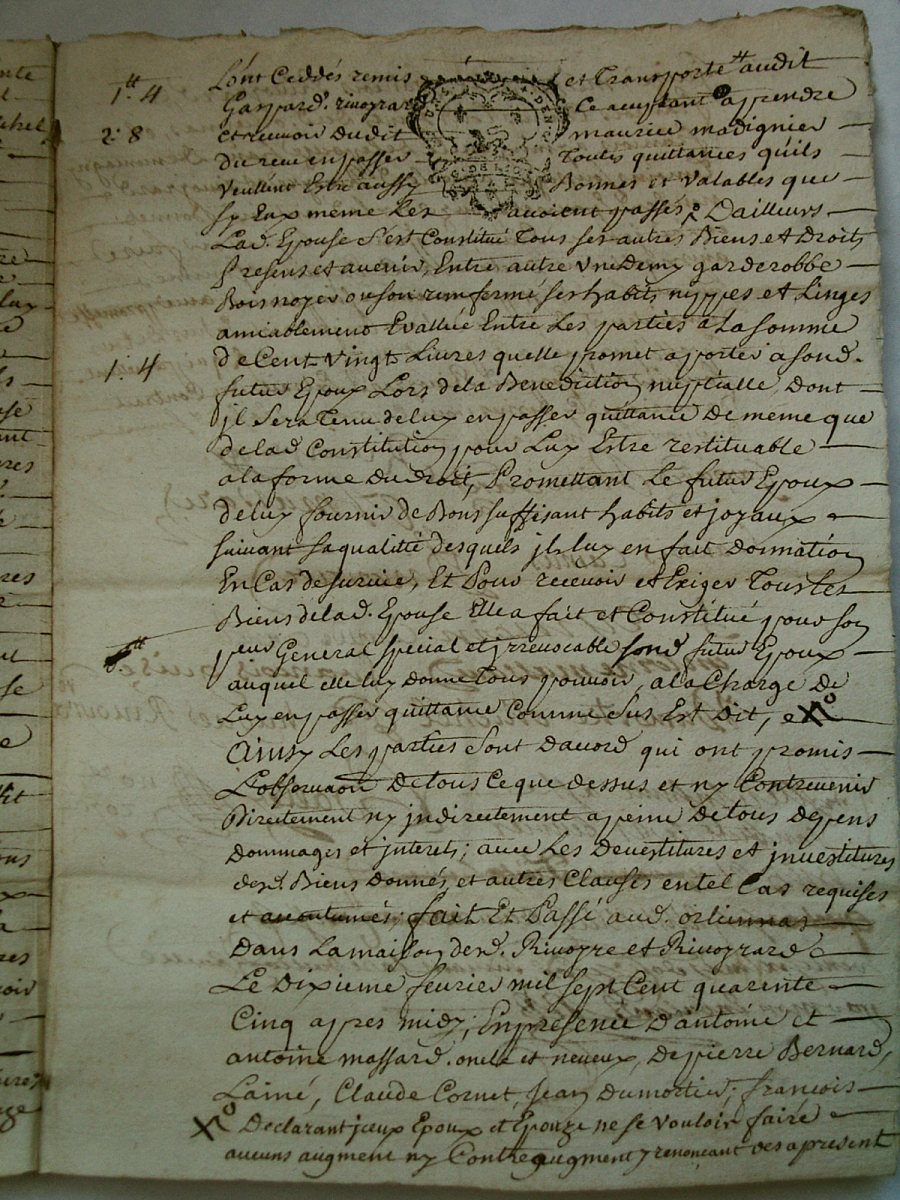 1.tt 4
L'ont Ceddés remis et Transporté tt audit
Gaspard. rivoyrard Ce acceptant apprendre
2. 8
et recevoir Dudit maurice matignier
du receu en passer Toutes quittances quils
veullent Estre aussy Bonnes et valables que
sy Eux meme Les avoient passés, D'ailleurs
Lad. Epouse s'est Constitué Tous ses autres Biens et Droits
Presens et avenir, Entre autre vne Demy garderobbe
Bois noyer ou son remfermé ses habits nyppes et Linges
amiablement Evalluée Entre Les parties a La somme
1. 4
de Cent vingt Livres quelle promet aporter a sond.
futur Epoux Lors de la Benediction nuptialle, Dont
jl sera Tenu de luy en passer quittance De meme que
de lad. Constitution pour Luy Estre restituable
a la forme du Droit, Promettant Le futur Epoux
de luy fournir de Bons suffisant habits et joyaux
suivant sa qualitté desquels jl luy en fait Donnation
En Cas de survie, Et Pour recevoir et Exiger Tous les
Biens de lad. Epouse Elle a fait et Constitué pour son
tt
peur General special et jrrevocable sond. futur Epoux
auquel elle luy donne Tous pouvoir, a la Charge De
Luy en passer quittance Comme sus Est Dit, et Xo
Ainsy Les parties sont Dacord qui ont promis
L'observaon De tous Ce que dessus et ny Contrevenir
Directement ny jndirectement a peine De tous depens
Dommages et jnterets; avec Les Devestitures et jnvestitures
desd. Biens Donnés, et autres Clauses en tel Cas requises
et accoutumés; fait Et Passé aud. orliennas
Dans La maison desd. Rivoyre et Rivoyrard
Le Dixieme fevrier mil sept Cent quarente
Cinq apres midy; En presence D'antoine et
antoine massard. oncle et neveux, De pierre Bernard,
Lainé, Claude Cornet, Jean Dumortier; francois
Xo Declarant jceux Epoux et Epouze ne se vouloir faire
aucuns augment ny Contreaugment y renoncant des apresent